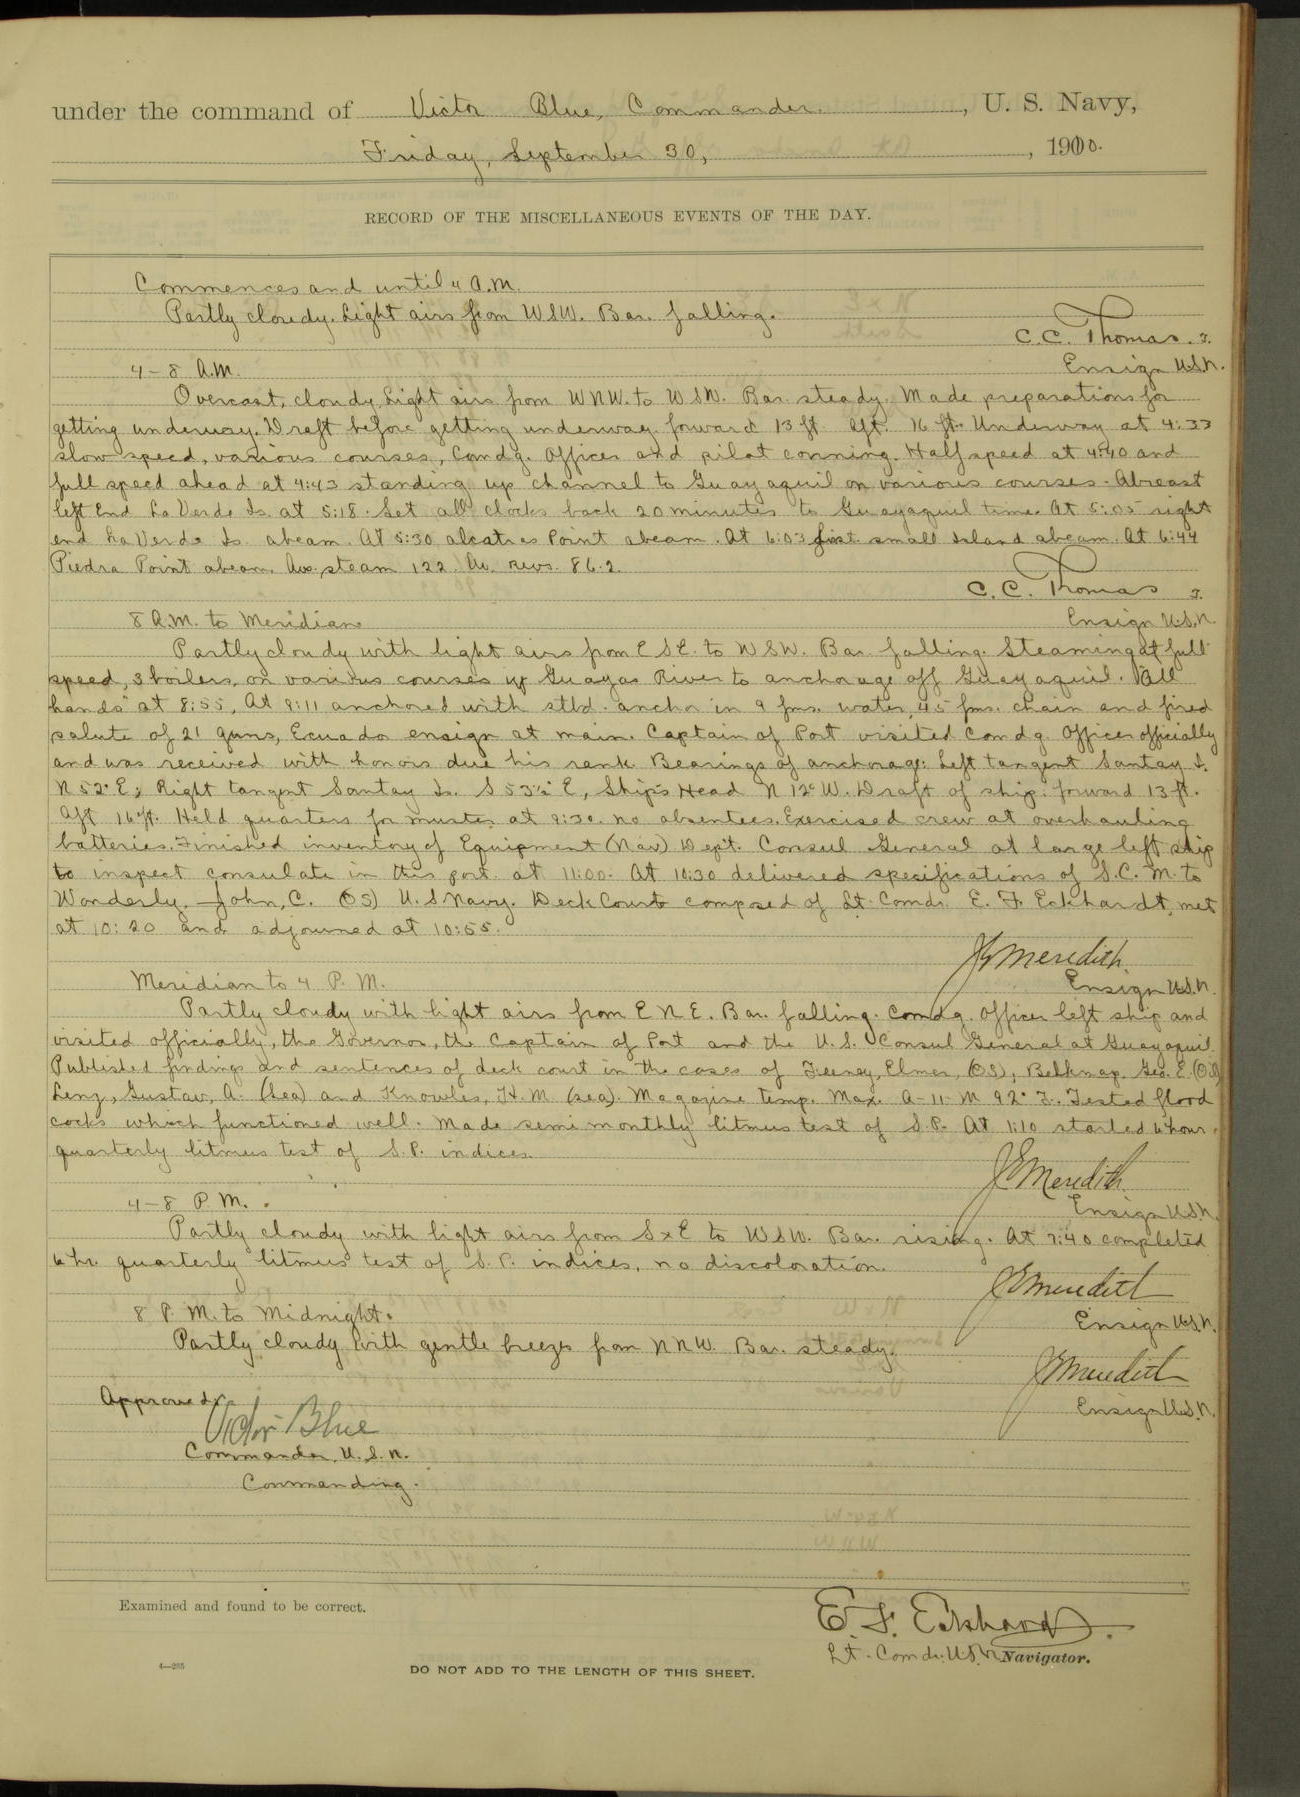 under the command of Victor Blue, Commander, U. S. Navy,
Friday, September 30, , 1910.
RECORD OF THE MISCELLANEOUS EVENTS OF THE DAY.
Commences and until 4 A.M.
Partly cloudy. Light airs from WSW. Bar. falling.
C.C. Thomas.
Ensign U.S.N.
4-8 A.M.
Overcast, cloudy, light airs from WNW. to WSW. Bar. steady. Made preparations for
getting underway. Draft before getting underway forward 13 ft. Aft. 16 ft. Underway at 4:33
slow speed, various courses, Comdg. Officer and pilot conning. Half speed at 4:40 and
full speed ahead at 4:43 standing up channel to Guayaquil on various courses. Abreast
left End La Verde Is. at 5:18. Set all clocks back 20 minutes to Guayaquil time. At 5:05 right
end La Verde Is. abeam. At 5:30 alcatres Point abeam. At 6:03 first small Island abeam. At 6:44
Piedra Point abeam. Ave. steam 122. Av. revs. 86.2.
C. C. Thomas
Ensign U.S.N.
8 A.M. to Meridian
Partly cloudy with light airs from ESE. to WSW. Bar. falling. Steaming at full
speed, 3 boilers, on various courses up Guayas River to anchorage off Guayaquil. All
hands at 8:55, At 9:11 anchored with stbd. anchor in 9 fms. water, 45 fms. chain and fired
salute of 21 guns, Ecuador ensign at main. Captain of Port visited Comdg. Officer officially
and was received with honors due his rank. Bearings of anchorage: Left tangent Santay I.
N 52° E; Right tangent Santay Is. S 53½° E, Ship's Head N 12° W. Draft of ship: forward 13 ft.
Aft 16 ft. Held quarters for muster at 9:30. no absentees. Exercised crew at overhauling
batteries. Finished inventory of Equipment (Nav) Dept. Consul General at large left ship
to inspect consulate in this port at 11:00. At 10:30 delivered specifications of S.C.M. to
Wonderly, John, C. (OS) U.S Navy. Deck Court composed of Lt. Comdr. E. F. Eckhardt, met
at 10:20 and adjourned at 10:55.
J E Meredith.
Ensign U.S.N.
Meridian to 4 P. M.
Partly cloudy with light airs from ENE. Bar. falling. Comdg. Officer left ship and
visited officially, the Governor, the Captain of Port and the U.S. Consul General at Guayaquil.
Published findings and sentences of deck court in the cases of Feeney, Elmer, (OS), Belknap, Geo. E.
Lenz, Gustav, A. (Sea) and Knowles, H. M. (sea). Magazine temp. Max. A-11-M 92° F. Tested flood
cocks which functioned well. Made semi monthly litmus test of S.P. At 1:10 started 6 hour
quarterly litmus test of S.P. indices.
J E Meredith.
Ensign U.S.N.
4-8 P M.
Partly cloudy with light airs from SxE to WSW. Bar. rising. At 7:40 completed
6 hr. quarterly litmus test of S.P. indices, no discoloration.
J E Meredith
Ensign U.S.N.
8 P. M. to Midnight.
Partly cloudy with gentle breezes from NNW. Bar. steady.
J E Meredith
Ensign U.S.N.
Approved:
Victor Blue
Commander, U.S.N.
Commanding.
Examined and found to be correct.
E. F. Eckhardt.
Lt. Comdr. U.S.N. Navigator.
DO NOT ADD TO THE LENGTH OF THIS SHEET.